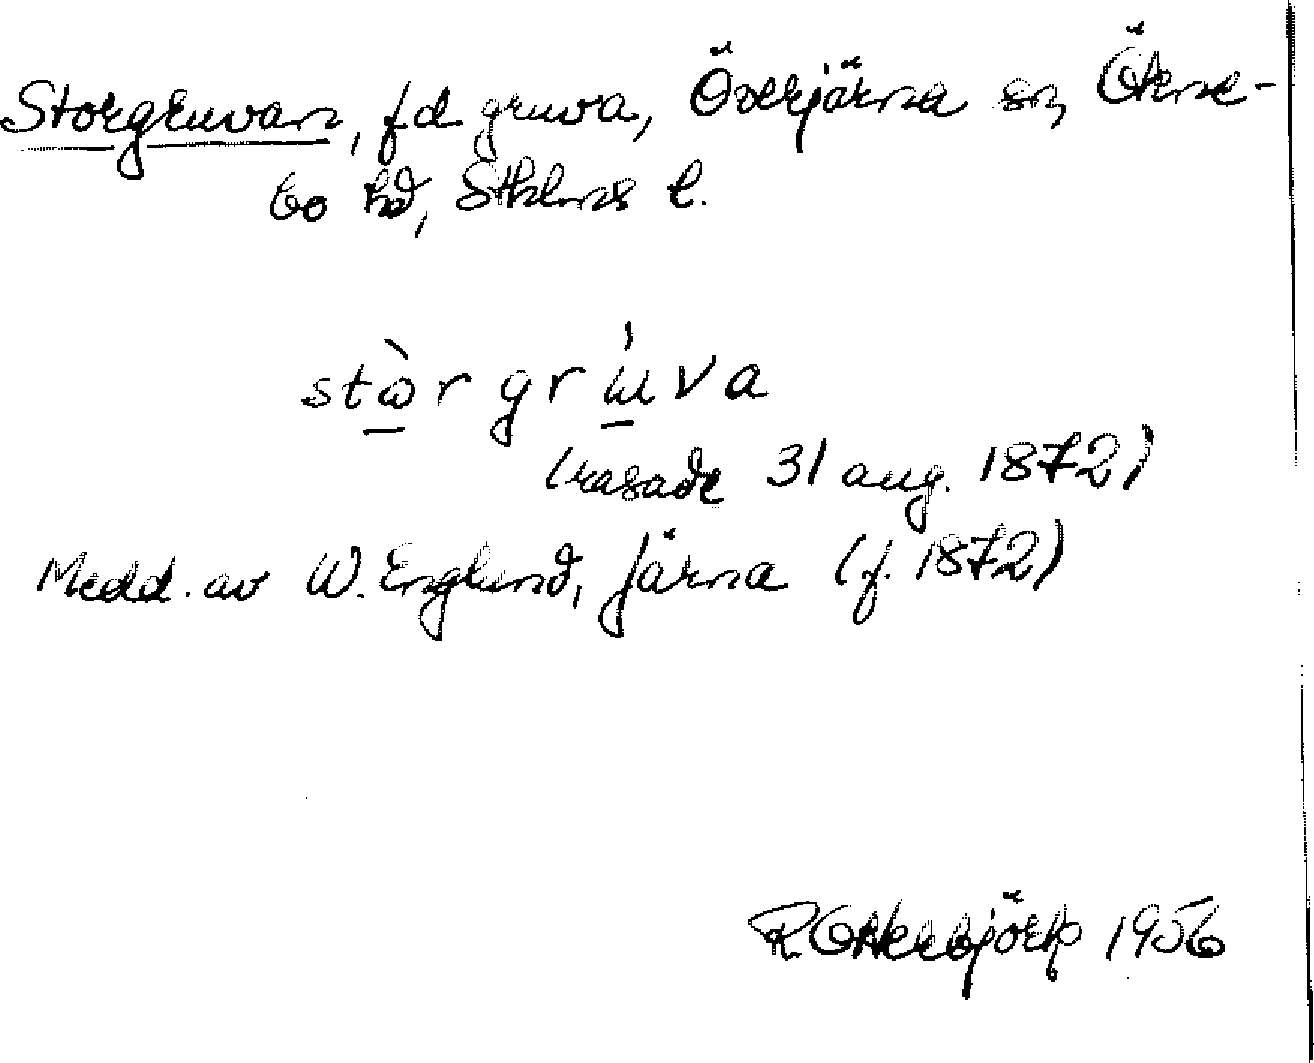 Storgruvan, fd gruva, Överjärna sn, Ökne-
bo hd, Sthlms l.
stὼrgrúva
(rasade 31 aug. 1872)
Medd. av W. Englund, Järna (f. 1872)
R Otterbjörk 1956